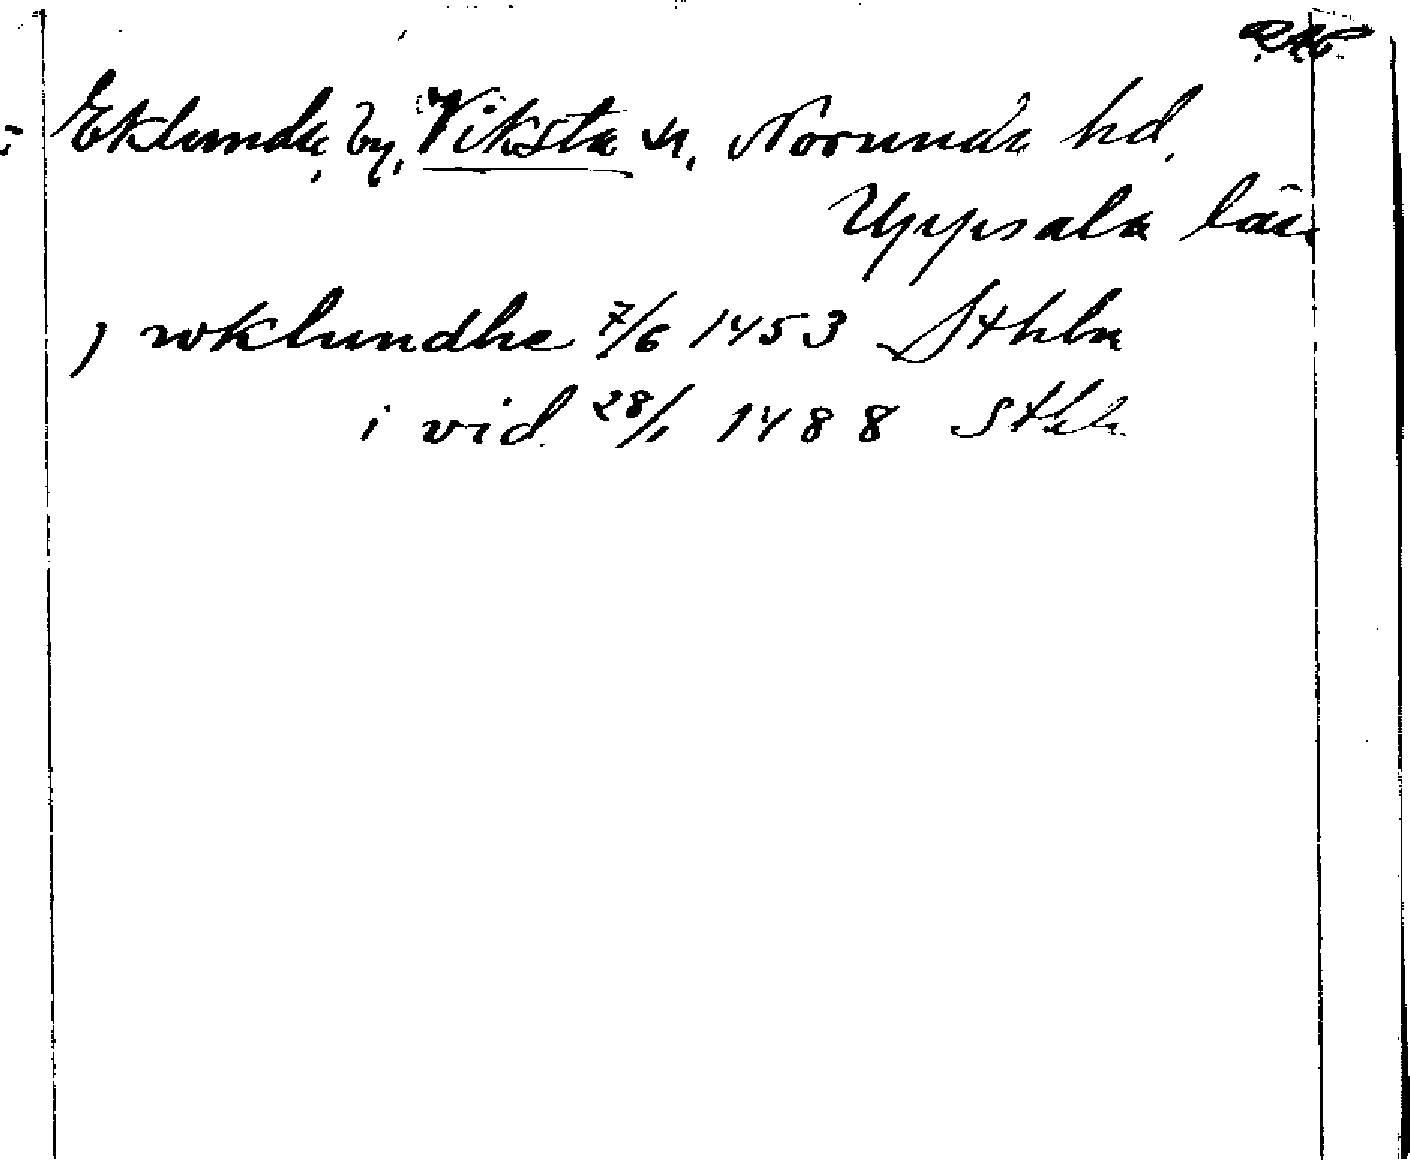 Eklunda, by, Viksta sn, Norunda hd,
Uppsala län
) wklundhe 7/6 1453 Sthbn
i vid. 28/1 1488 Sthh